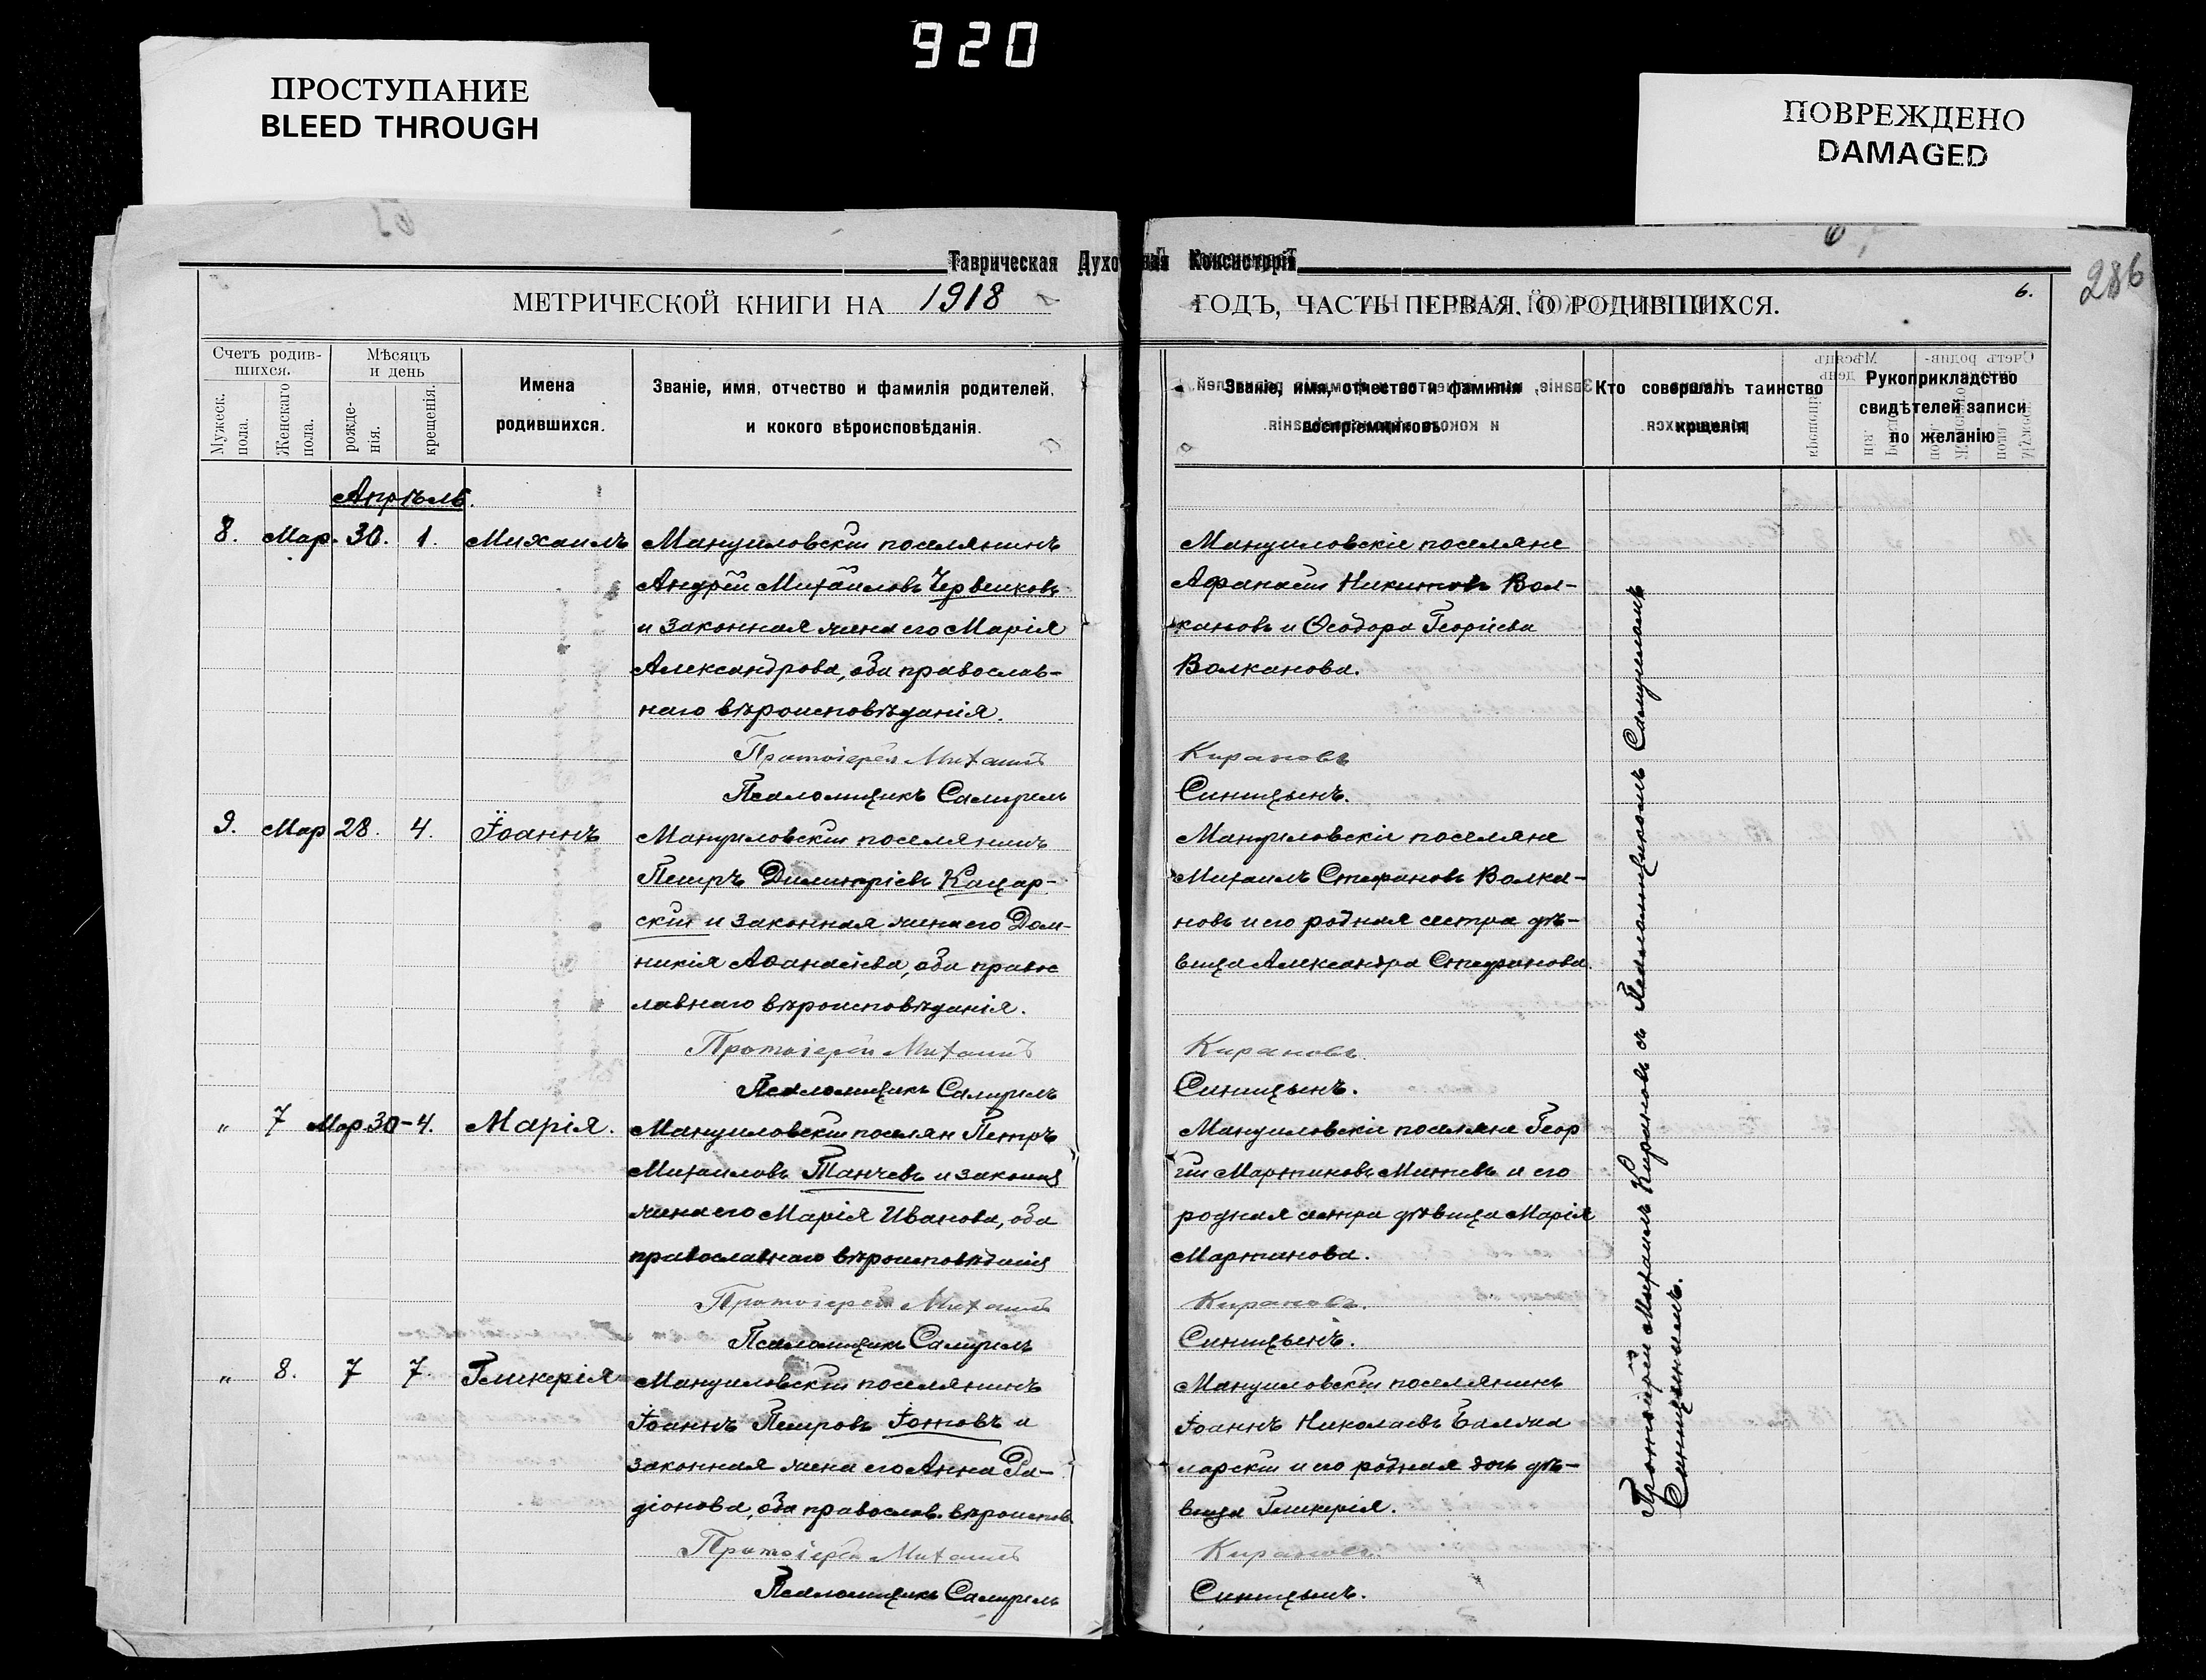 920
ПРОСТУПАНИЕ
BLEED THROUGH
ПОВРЕЖДЕНО
DAMAGED
286
Таврическая Духовная Консисторія
МЕТРИЧЕСКОЙ КНИГИ НА 1918 ГОДЪ, ЧАСТЬ ПЕРВАЯ, О РОДИВШИХСЯ.
6.
Счетъ родив-
шихся.
Мужеск.
пола.
Женскаго
пола.
Мѣсяцъ
и день
рожде-
нія.
крещенія.
Имена
родившихся.
Званіе, имя, отчество и фамилія родителей,
и кокого вѣроисповѣданія.
Званіе, имя, отчество и фамилія
воспріемниковъ.
Кто совершалъ таинство
крщенія
Рукоприкладство
свидѣтелей записи
по желанію
Апрѣль.
8. Мар. 30. 1. Михаилъ
Мануиловскій поселянинъ
Андрей Михайловъ Червенковъ
и законная жена его Марія
Александрова, оба православ-
наго вѣроисповѣданія.
Протоіерей Михаилъ
Псаломщикъ Самуилъ
Мануиловскіе поселяне
Афанасій Никитовъ Вол-
кановъ и Ѳеодора Георгіева
Волканова.
Кирановъ
Синицынъ.
9. Мар 28. 4. Іоаннъ
Мануиловскій поселянинъ
Петръ Димитріевъ Кацар-
скій и законная жена его Дом-
никія Аѳанасіева, оба правос
лавнаго вѣроисповѣданія.
Протоіерей Михаилъ
Псаломщикъ Самуилъ
Мануиловскіе поселяне
Михаилъ Стефановъ Волка-
новъ и его родная сестра дѣ-
вица Александра Стефанова.
Кирановъ.
Синицынъ.
" 7 Мар 30 - 4. Марія.
Мануиловскій поселян Петръ
Михаиловъ Танчевъ и законная
жена его Марія Иванова, оба
православнаго вѣроисповѣданія
Протоіерей Михаилъ
Псаломщикъ Самуилъ
Мануиловскіе поселяне Геор
гій Мартиновъ Митевъ и его
родная сестра дѣвица Марія
Мартинова.
Кирановъ.
Синицынъ.
" 8. 7 7. Гликерія
Мануиловскій поселянинъ
Іоаннъ Петровъ Іотовъ и
законная жена его Анна Ра-
діонова, оба православ. вѣроиспов.
Протоіерей Михаилъ
Псаломщикъ Самуилъ
Мануиловскій поселянинъ
Іоаннъ Николаевъ Балжа
ларскій и его родная дочь дѣ-
вица Гликерія.
Кирановъ.
Синицынъ.
Протоіерей Михаилъ Кирановъ съ Псаломщикомъ Самуиломъ
Синицынымъ.